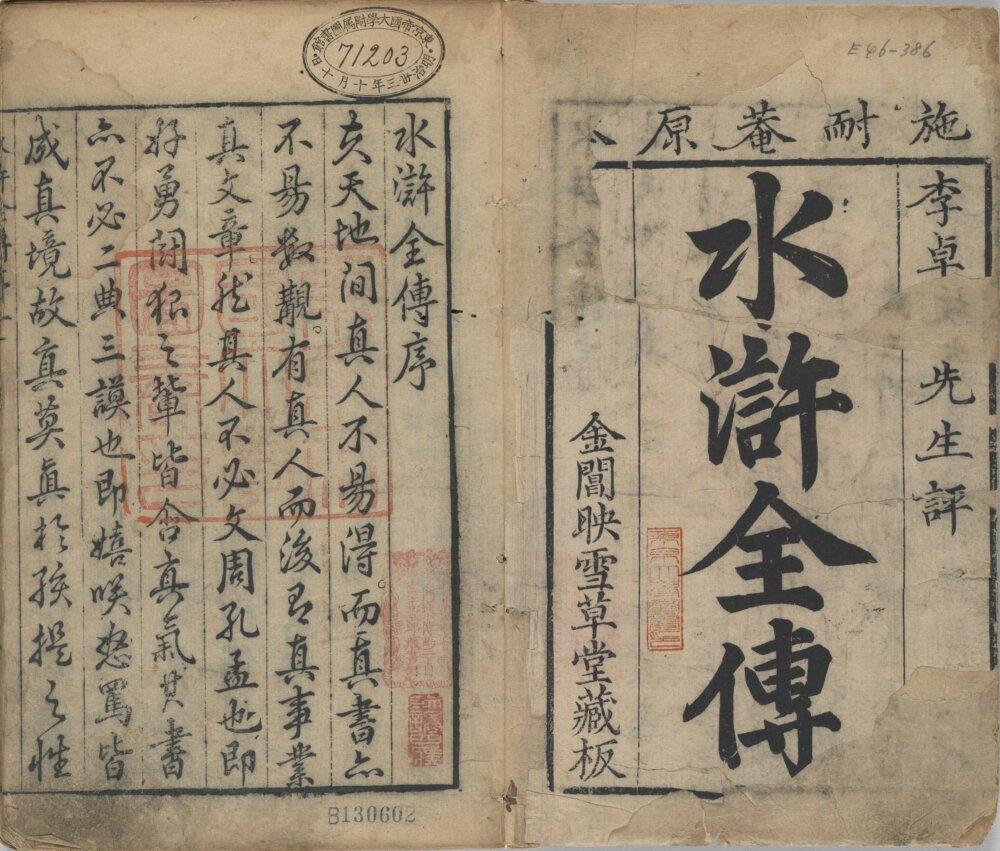 E46-386
施耐菴原
李卓
先生評
水滸全傳
金閶映雪草堂藏板
東京帝國大學附属圖書館
71203
明治卅三年十月十日
水滸全傳序
夫天地間真人不易得而真書亦
不易数覯。有真人而後有真事業
真文章然其人不必文周孔孟也即
好勇鬪狠之輩皆含真氣其書
亦不必二典三謨也即嬉咲怒罵皆
成真境故真莫眞於孩提之性
B130602